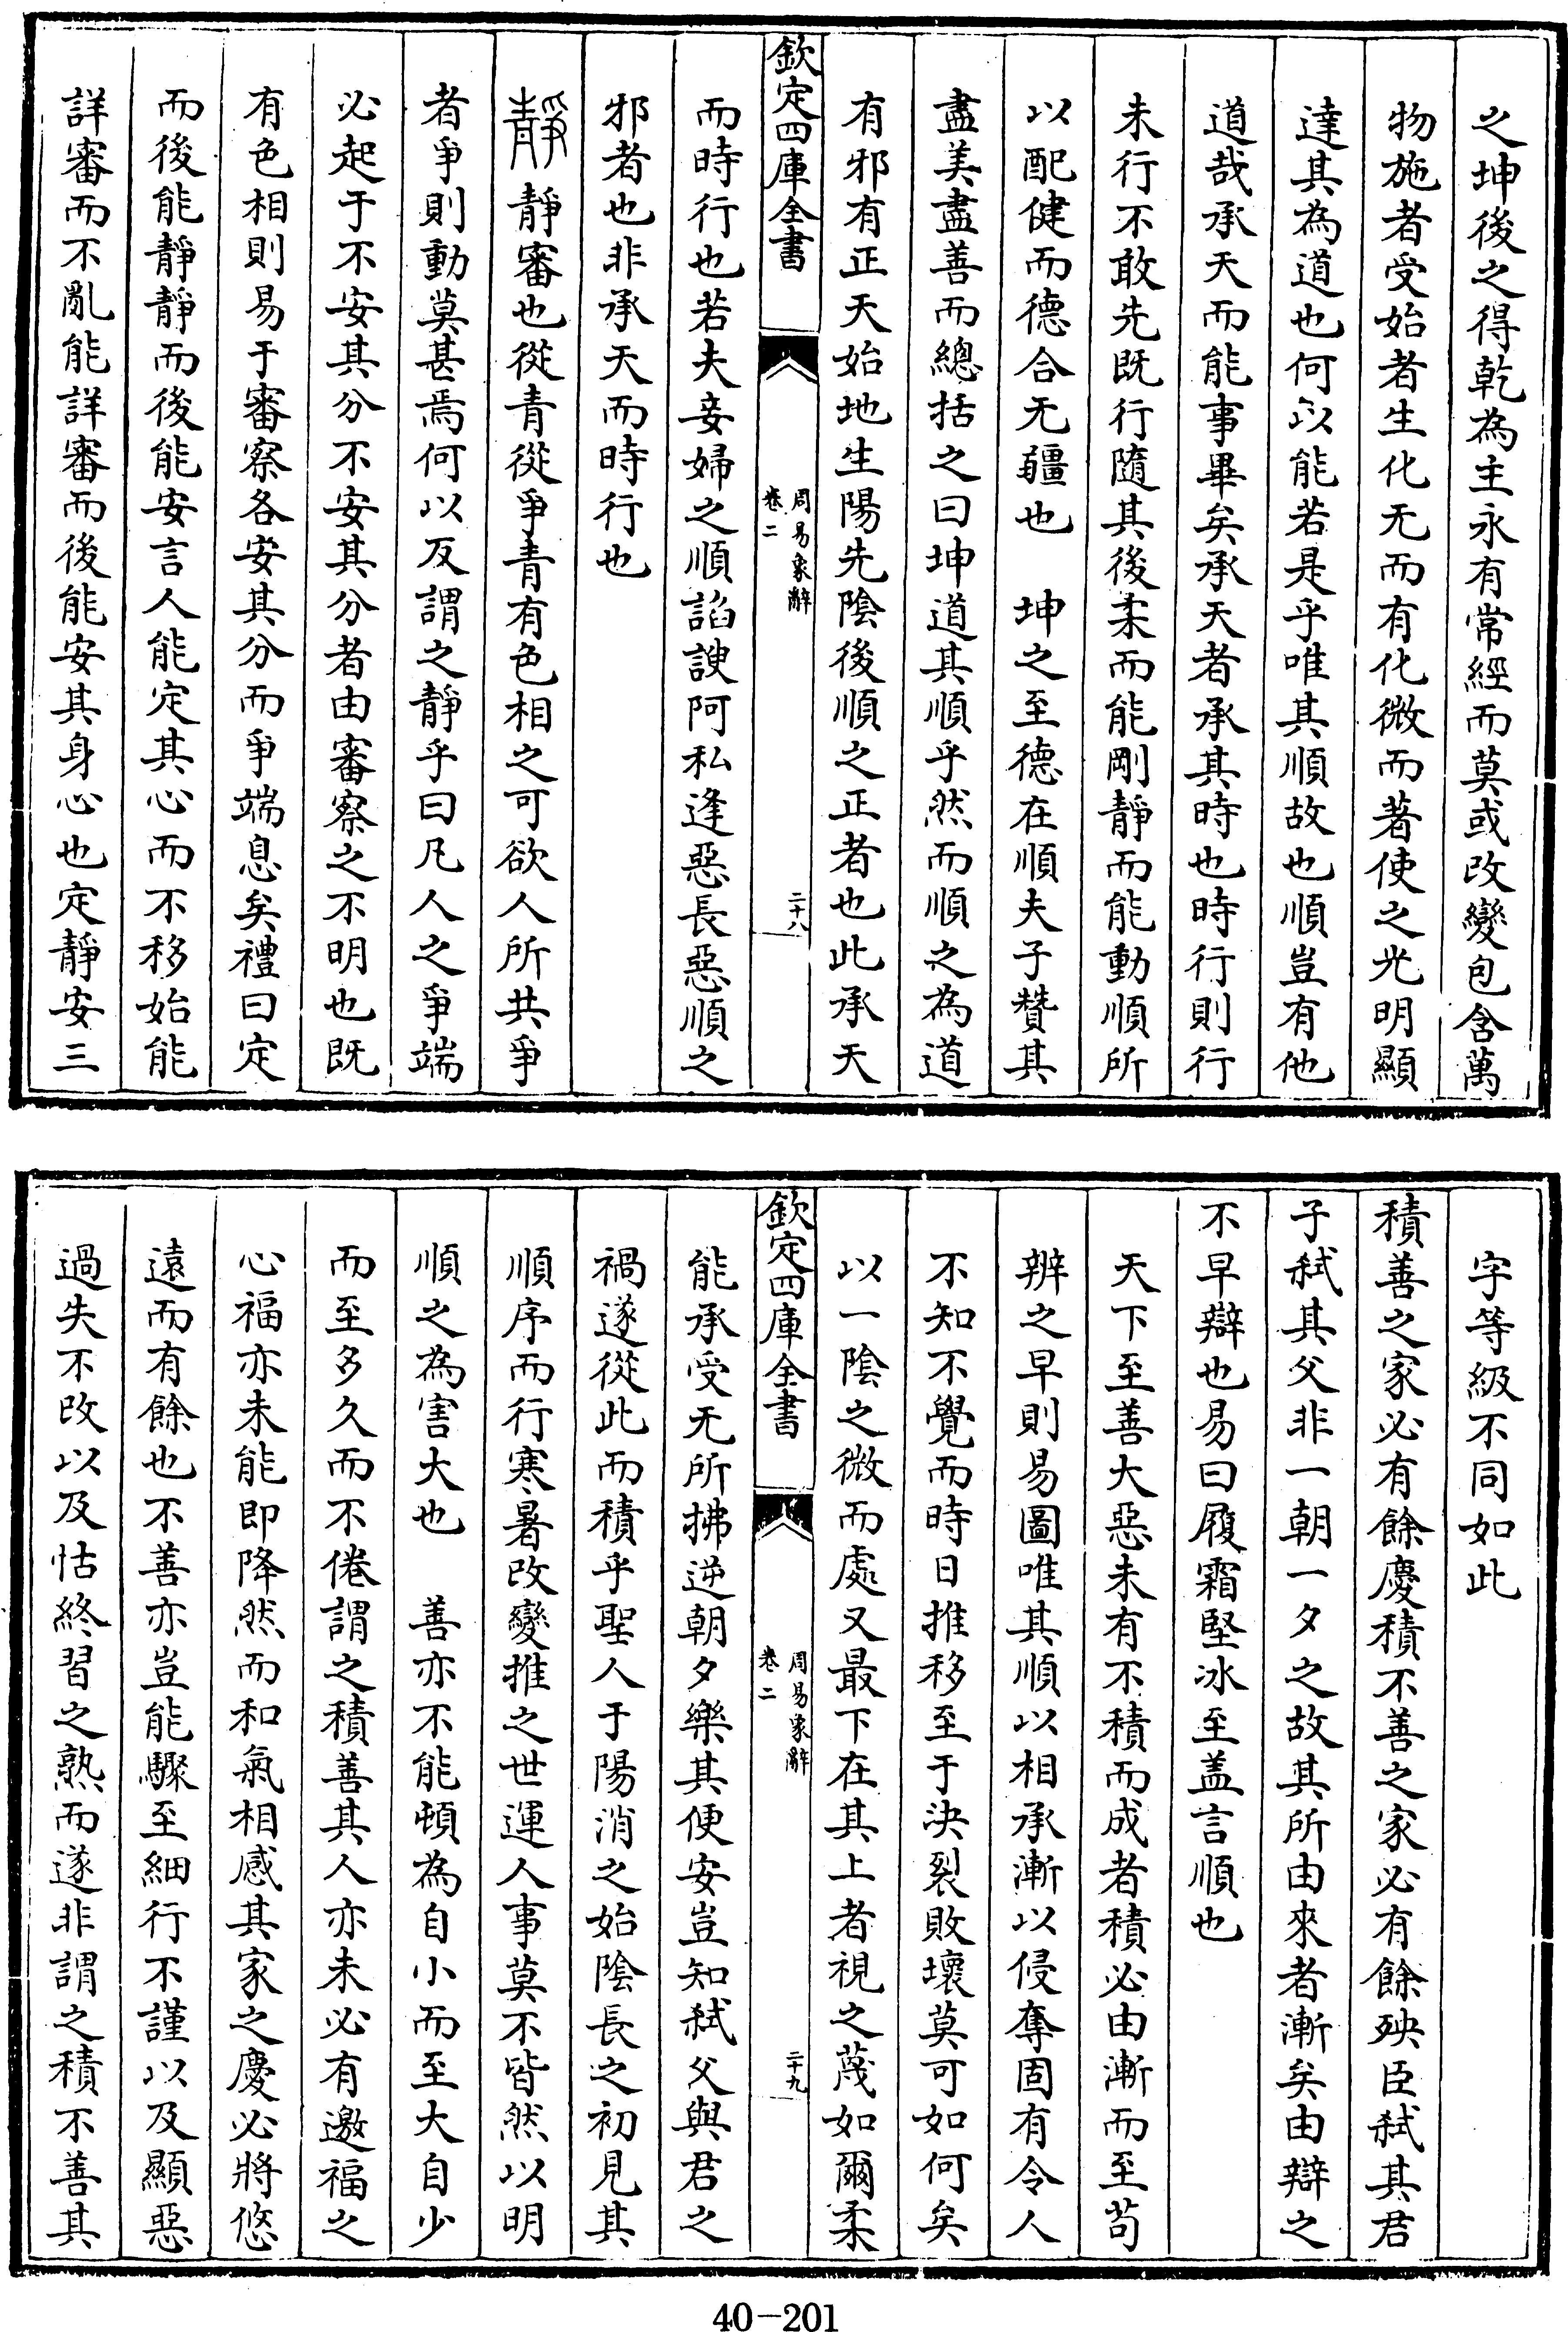 之坤後之得乾為主永有常經而莫或改變包含萬
物施者受始者生化无而有化微而著使之光明顯
達其為道也何以能若是乎唯其順故也順豈有他
道哉承天而能事畢矣承天者承其時也時行則行
未行不敢先既行隨其後柔而能剛靜而能動順所
以配健而德合无疆也　坤之至德在順夫子贊其
盡美盡善而總括之曰坤道其順乎然而順之為道
有邪有正天始地生陽先陰後順之正者也此承天
欽定四庫全書
周易象辭
卷二
二十八
而時行也若夫妾婦之順諂諛阿私逢惡長惡順之
邪者也非承天而時行也
靜靜審也從青從爭青有色相之可欲人所共爭
者爭則動莫甚焉何以反謂之靜乎曰凡人之爭端
必起于不安其分不安其分者由審察之不明也既
有色相則易于審察各安其分而爭端息矣禮曰定
而後能靜靜而後能安言人能定其心而不移始能
詳審而不亂能詳審而後能安其身心也定靜安三
字等級不同如此
積善之家必有餘慶積不善之家必有餘殃臣弒其君
子弒其父非一朝一夕之故其所由來者漸矣由辯之
不早辯也易曰履霜堅冰至盖言順也
天下至善大惡未有不積而成者積必由漸而至苟
辨之早則易圖唯其順以相承漸以侵奪固有令人
不知不覺而時日推移至于決裂敗壞莫可如何矣
以一陰之微而處又最下在其上者視之蔑如爾柔
欽定四庫全書
周易象辭
卷二
二十九
能承受无所拂逆朝夕樂其便安豈知弒父與君之
禍遂從此而積乎聖人于陽消之始陰長之初見其
順序而行寒暑改變推之世運人事莫不皆然以明
順之為害大也　善亦不能頓為自小而至大自少
而至多久而不倦謂之積善其人亦未必有邀福之
心福亦未能即降然而和氣相感其家之慶必將悠
遠而有餘也不善亦豈能驟至細行不謹以及顯惡
過失不改以及怙終習之熟而遂非謂之積不善其
40-201